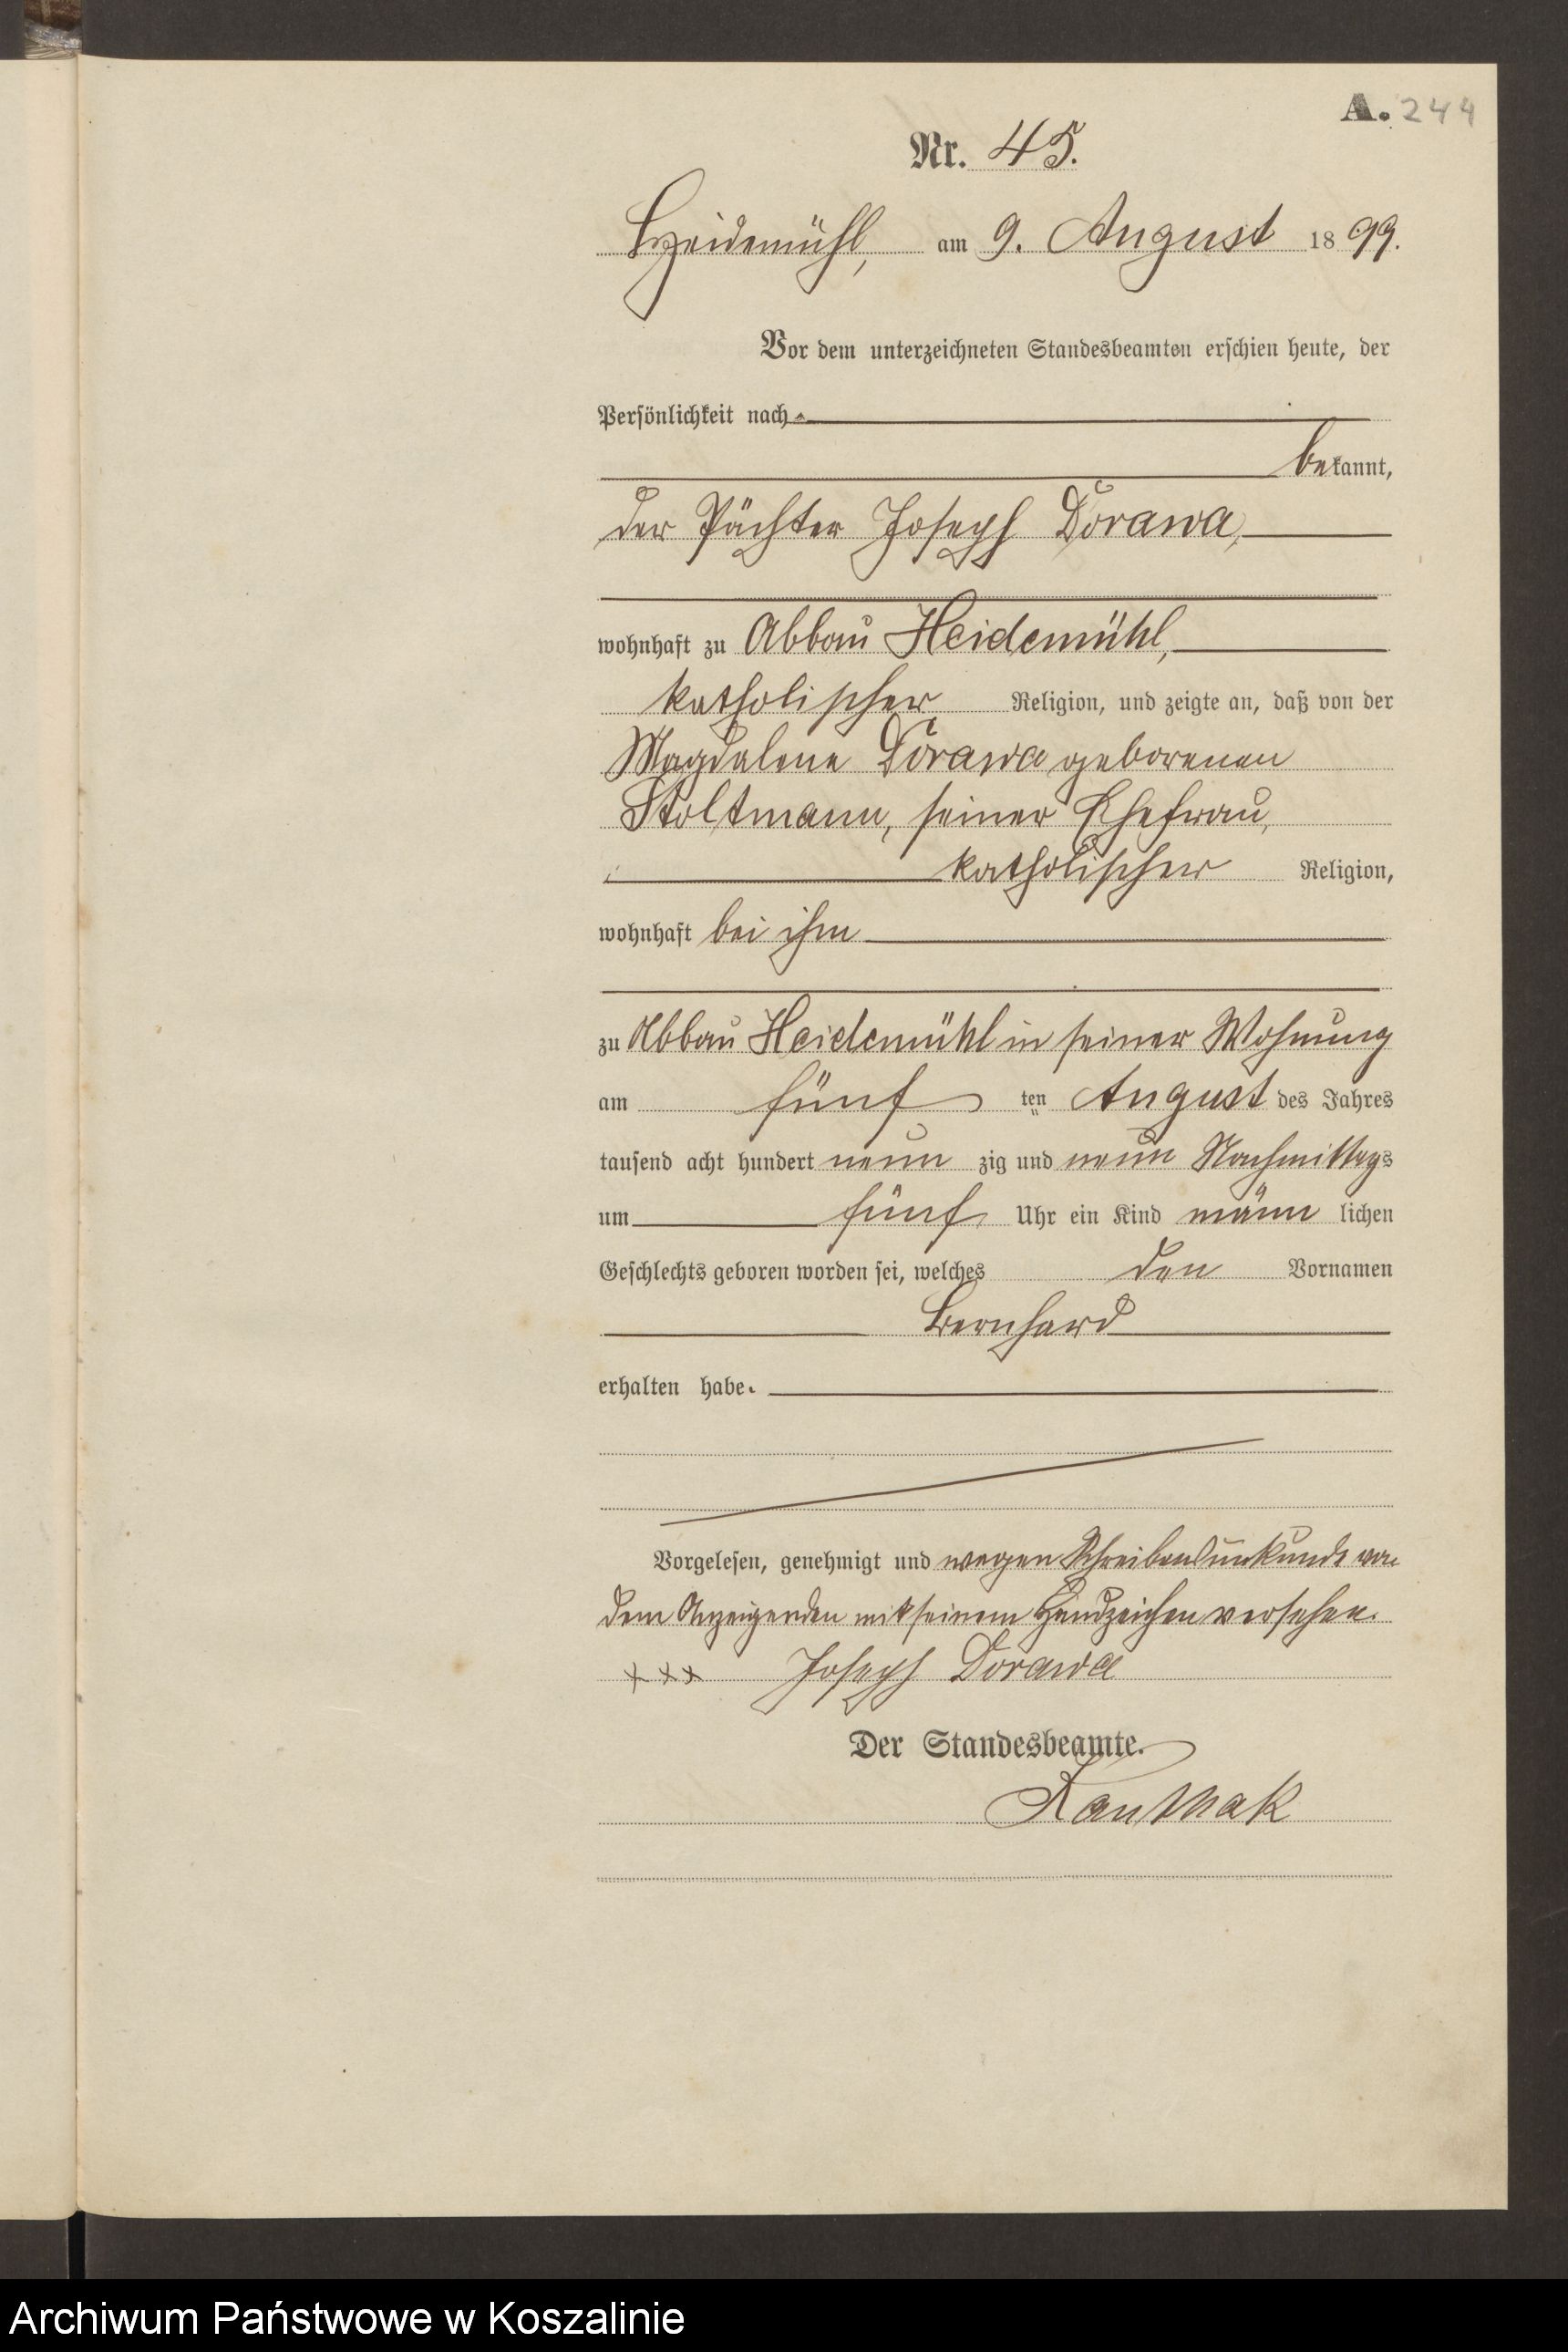 A. 244
Nr. 45.
Heidemühl, am 9. August 1899.
Vor dem unterzeichneten Standesbeamten erschien heute, der
Persönlichkeit nach
bekannt,
der Pächter Joseph Dorawa,
wohnhaft zu Abbau Heidemühl,
katholischer Religion, und zeigte an, daß von der
Magdalene Dorawa geborenen
Stoltmann, seiner Ehefrau,
katholischer Religion,
wohnhaft bei ihm
zu Abbau Heidemühl in seiner Wohnung
am fünf ten August des Jahres
tausend acht hundert neun zig und neun Nachmittags
um fünf Uhr ein Kind männ lichen
Geschlechts geboren worden sei, welches den Vornamen
Bernhard
erhalten habe.
Vorgelesen, genehmigt und wegen Schreibensunkunde von
dem Anzeigenden mit seinem Handzeichen versehen.
xxx Joseph Dorawa
Der Standesbeamte.
Kanthak
Archiwum Państwowe w Koszalinie